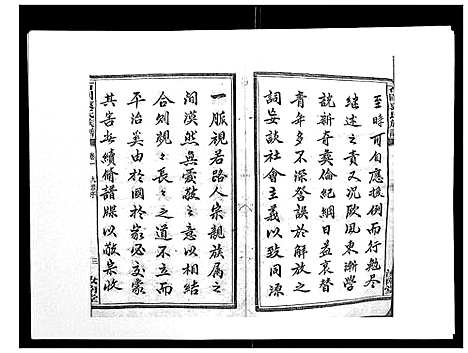 至時可應援例而行勉尽
継述之責又况歐風東漸學
説新奇彛倫紀綱日益衰替
青年多不深咎誤於解放之
詞妄談社會主義以致同源
一脈視若路人宗親族属之
间漠然無愛敬之意以相结
合则親々長々之道不立而
平治奚由於國於家必交蒙
其害安續脩譜牒以敬宗收
卷一
三